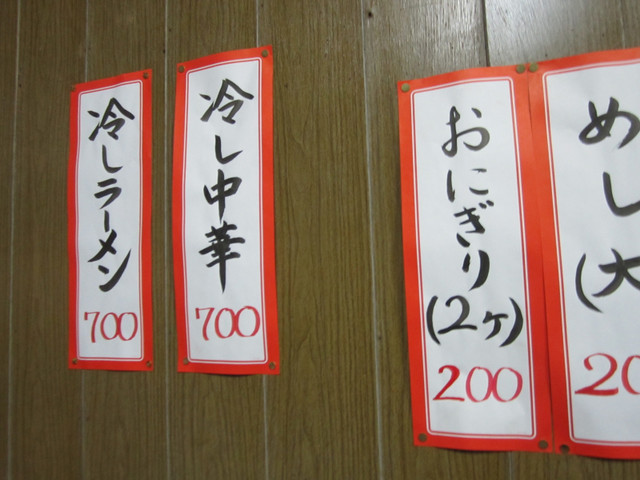 冷しラーメン
700
冷し中華
700
おにぎり(2ヶ)
200
めし(大
20